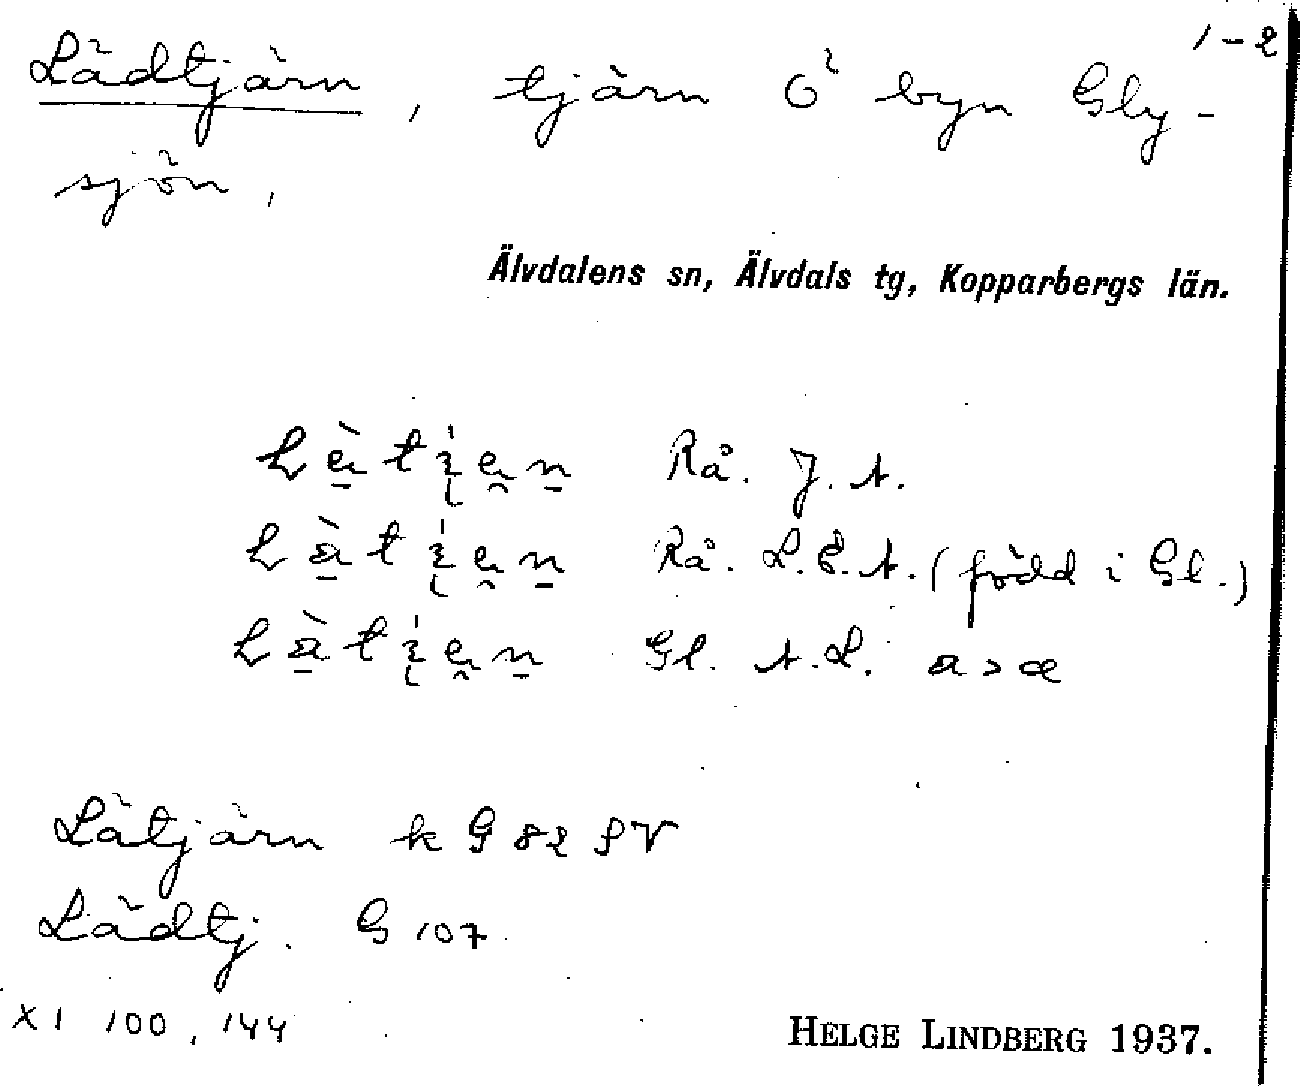 1-2
Lädtjärn, tjärn Ö byn Gly-
sjön,
Älvdalens sn, Älvdals tg, Kopparbergs län.
Rå. J. A.
Rå. L. E. A. (född i Gl.)
Gl. A. L. a > æ
Lätjärn k G 82 SV
Lädtj. G 107
XI 100, 144
HELGE LINDBERG 1937.